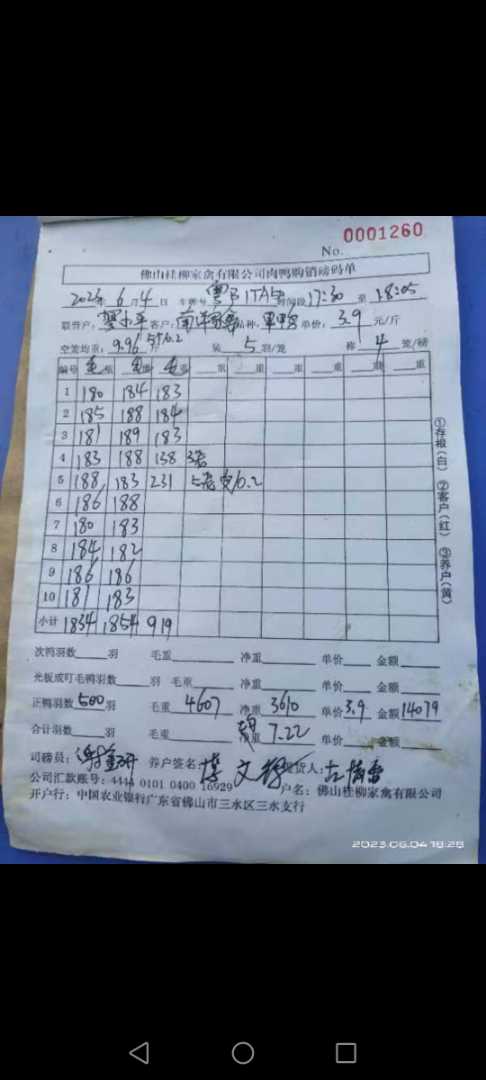 0001260
No.
佛山桂柳家禽有限公司肉鸭购销磅码单
2023年 6月4日 车牌号 时间段17:30至18:05
联营户: 小平 客户: 品种: 单价: 3.9 元/斤
空笼均重: 9.96 装 5 羽/笼 称 4 笼/磅
编号 毛重 毛重 毛重 重 重 重 重
1 180 184 183
2 185 188 184
3 181 189 183
4 183 188 138 3笼
5 188 183 231 6.2
6 186 188
7 180 183
8 184 182
9 186 186
10 181 183
小计 1834 1854 919
①存根(白) ②客户(红) ③养户(黄)
次鸭羽数 羽 毛重 净重 单价 金额
光板或盯毛鸭羽数 羽 毛重 净重 单价 金额
正鸭羽数 500 羽 毛重 4607 净重 3610 单价3.9 金额14079
合计羽数 羽 毛重 净重 7.22 单价 金额
司磅员: 养户签名: 文 提货人:
公司汇款账号: 4444 0101 0400 16929 户名: 佛山桂柳家禽有限公司
开户行: 中国农业银行广东省佛山市三水区三水支行
2023.06.04 18:26